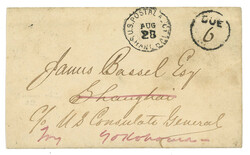 U.S. POSTAL AGCY
SHANGHAI
AUG
28
DUE
6
James Bassel Esq
Shanghai
c/o U S Consulate General
Yokohama